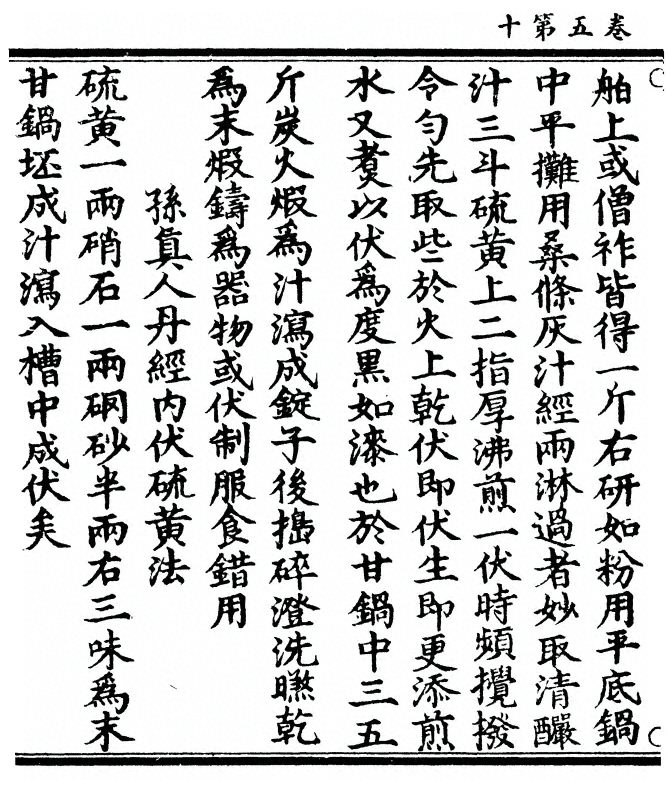 卷五第十
舶上或僧祚皆得一斤右研如粉用平底鍋
中平攤用桑條灰汁經兩淋過者妙取清釅
汁三斗硫黃上二指厚沸煎一伏時頻攪撥
令勻先取些於火上乾伏即伏生即更添煎
水又煑以伏爲度黒如漆也於甘鍋中三五
斤炭火煆爲汁瀉成錠子後搗碎澄洗乾
爲末煆鑄爲器物或伏制服食錯用
孫眞人丹經內伏硫黃法
硫黃一兩硝石一兩硇砂半兩右三味爲末
甘鍋坯成汁瀉入槽中成伏矣